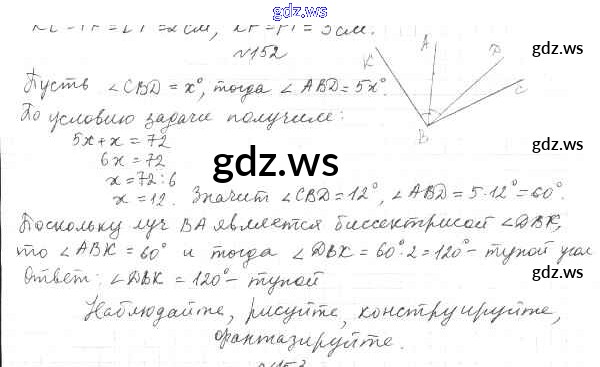 gdz.ws
KE = PF = EF = 2 см, KF = PF = 3 см.
N152
gdz.ws
gdz.ws
K A D C B
Пусть ∠CBD = x°, тогда ∠ABD = 5x°.
По условию задачи получим:
5x + x = 72
6x = 72
x = 72 : 6
x = 12. Значит ∠CBD = 12°, ∠ABD = 5·12° = 60°.
gdz.ws
Поскольку луч BA является биссектрисой ∠DBK,
то ∠ABK = 60° и тогда ∠DBK = 60°·2 = 120° - тупой угол
gdz.ws
Ответ: ∠DBK = 120° - тупой
Наблюдайте, рисуйте, конструируйте,
gdz.ws
фантазируйте.
N153
gdz.ws